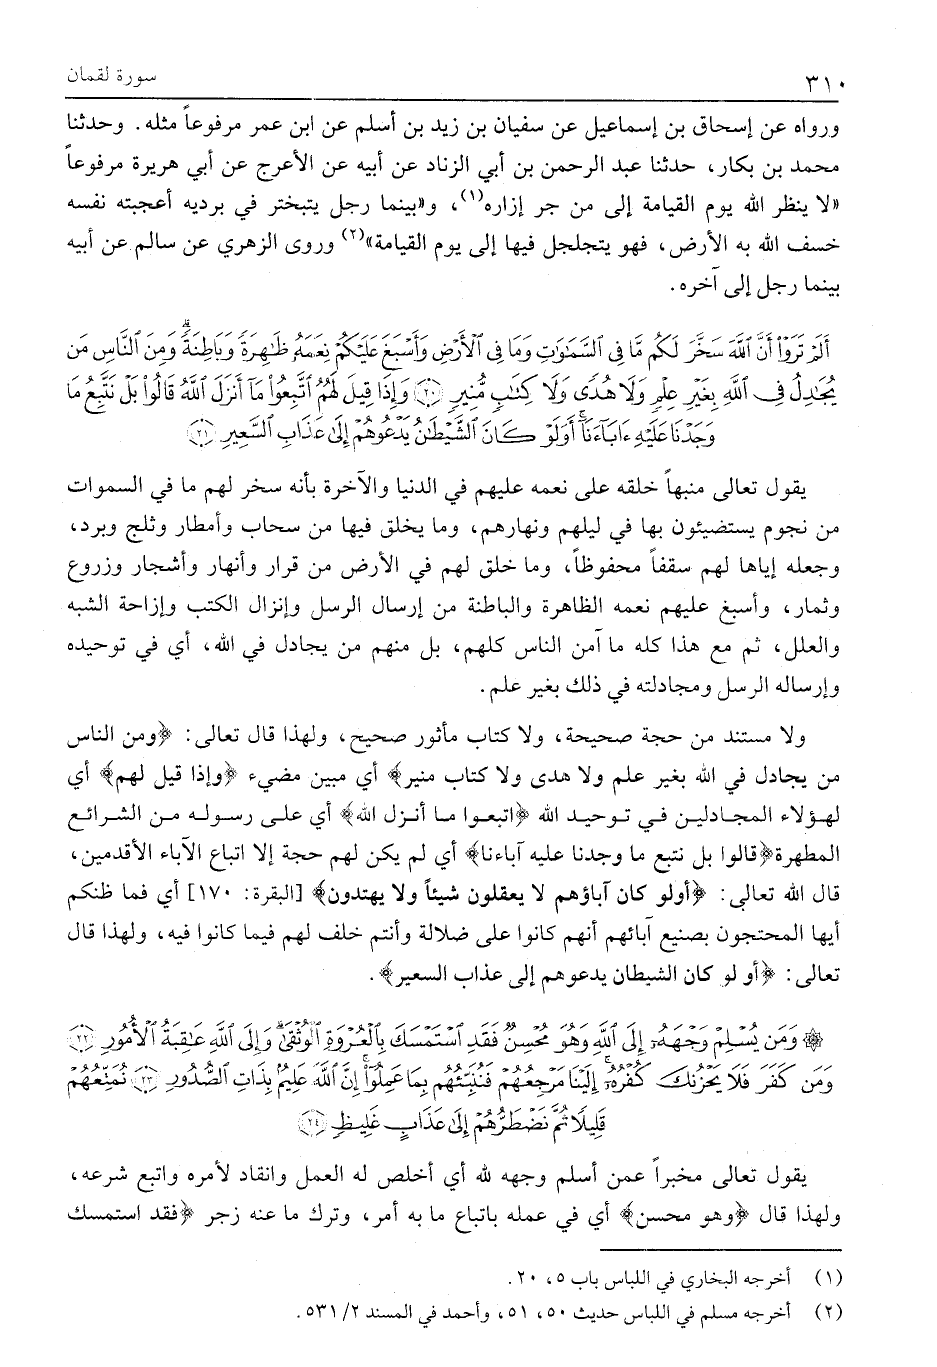 ٣١٠ سورة لقمان
ورواه عن إسحاق بن إسماعيل عن سفيان بن زيد بن أسلم عن ابن عمر مرفوعاً مثله. وحدثنا
محمد بن بكار، حدثنا عبد الرحمن بن أبي الزناد عن أبيه عن الأعرج عن أبي هريرة مرفوعاً
«لا ينظر الله يوم القيامة إلى من جر إزاره(١)، و«بينما رجل يتبختر في برديه أعجبته نفسه
خسف الله به الأرض، فهو يتجلجل فيها إلى يوم القيامة»(٢) وروى الزهري عن سالم عن أبيه
بينما رجل إلى آخره.
أَلَمْ تَرَوْا۟ أَنَّ ٱللَّهَ سَخَّرَ لَكُم مَّا فِى ٱلسَّمَـٰوَٰتِ وَمَا فِى ٱلْأَرْضِ وَأَسْبَغَ عَلَيْكُمْ نِعَمَهُۥ ظَـٰهِرَةً وَبَاطِنَةً ۗ وَمِنَ ٱلنَّاسِ مَن
يُجَـٰدِلُ فِى ٱللَّهِ بِغَيْرِ عِلْمٍ وَلَا هُدًى وَلَا كِتَـٰبٍ مُّنِيرٍ ﴿٢٠﴾ وَإِذَا قِيلَ لَهُمُ ٱتَّبِعُوا۟ مَآ أَنزَلَ ٱللَّهُ قَالُوا۟ بَلْ نَتَّبِعُ مَا
وَجَدْنَا عَلَيْهِ ءَابَآءَنَآ ۚ أَوَلَوْ كَانَ ٱلشَّيْطَـٰنُ يَدْعُوهُمْ إِلَىٰ عَذَابِ ٱلسَّعِيرِ ﴿٢١﴾
يقول تعالى منبهاً خلقه على نعمه عليهم في الدنيا والآخرة بأنه سخر لهم ما في السموات
من نجوم يستضيئون بها في ليلهم ونهارهم، وما يخلق فيها من سحاب وأمطار وثلج وبرد،
وجعله إياها لهم سقفاً محفوظاً، وما خلق لهم في الأرض من قرار وأنهار وأشجار وزروع
وثمار، وأسبغ عليهم نعمه الظاهرة والباطنة من إرسال الرسل وإنزال الكتب وإزاحة الشبه
والعلل، ثم مع هذا كله ما آمن الناس كلهم، بل منهم من يجادل في الله، أي في توحيده
وإرساله الرسل ومجادلته في ذلك بغير علم.
ولا مستند من حجة صحيحة، ولا كتاب مأثور صحيح، ولهذا قال تعالى: ﴿ومن الناس
من يجادل في الله بغير علم ولا هدى ولا كتاب منير﴾ أي مبين مضيء ﴿وإذا قيل لهم﴾ أي
لهؤلاء المجادلين في توحيد الله ﴿اتبعوا ما أنزل الله﴾ أي على رسوله من الشرائع
المطهرة﴿قالوا بل نتبع ما وجدنا عليه آباءنا﴾ أي لم يكن لهم حجة إلا اتباع الآباء الأقدمين،
قال الله تعالى: ﴿أولو كان آباؤهم لا يعقلون شيئاً ولا يهتدون﴾ [البقرة: ١٧٠] أي فما ظنكم
أيها المحتجون بصنيع آبائهم أنهم كانوا على ضلالة وأنتم خلف لهم فيما كانوا فيه، ولهذا قال
تعالى: ﴿أو لو كان الشيطان يدعوهم إلى عذاب السعير﴾.
۞ وَمَن يُسْلِمْ وَجْهَهُۥٓ إِلَى ٱللَّهِ وَهُوَ مُحْسِنٌ فَقَدِ ٱسْتَمْسَكَ بِٱلْعُرْوَةِ ٱلْوُثْقَىٰ ۗ وَإِلَى ٱللَّهِ عَـٰقِبَةُ ٱلْأُمُورِ ﴿٢٢﴾
وَمَن كَفَرَ فَلَا يَحْزُنكَ كُفْرُهُۥٓ ۚ إِلَيْنَا مَرْجِعُهُمْ فَنُنَبِّئُهُم بِمَا عَمِلُوٓا۟ ۚ إِنَّ ٱللَّهَ عَلِيمٌۢ بِذَاتِ ٱلصُّدُورِ ﴿٢٣﴾ نُمَتِّعُهُمْ
قَلِيلًا ثُمَّ نَضْطَرُّهُمْ إِلَىٰ عَذَابٍ غَلِيظٍ ﴿٢٤﴾
يقول تعالى مخبراً عمن أسلم وجهه لله أي أخلص له العمل وانقاد لأمره واتبع شرعه،
ولهذا قال ﴿وهو محسن﴾ أي في عمله باتباع ما به أمر، وترك ما عنه زجر ﴿فقد استمسك
(١) أخرجه البخاري في اللباس باب ٥، ٢٠.
(٢) أخرجه مسلم في اللباس حديث ٥٠، ٥١، وأحمد في المسند ٢/ ٥٣١.